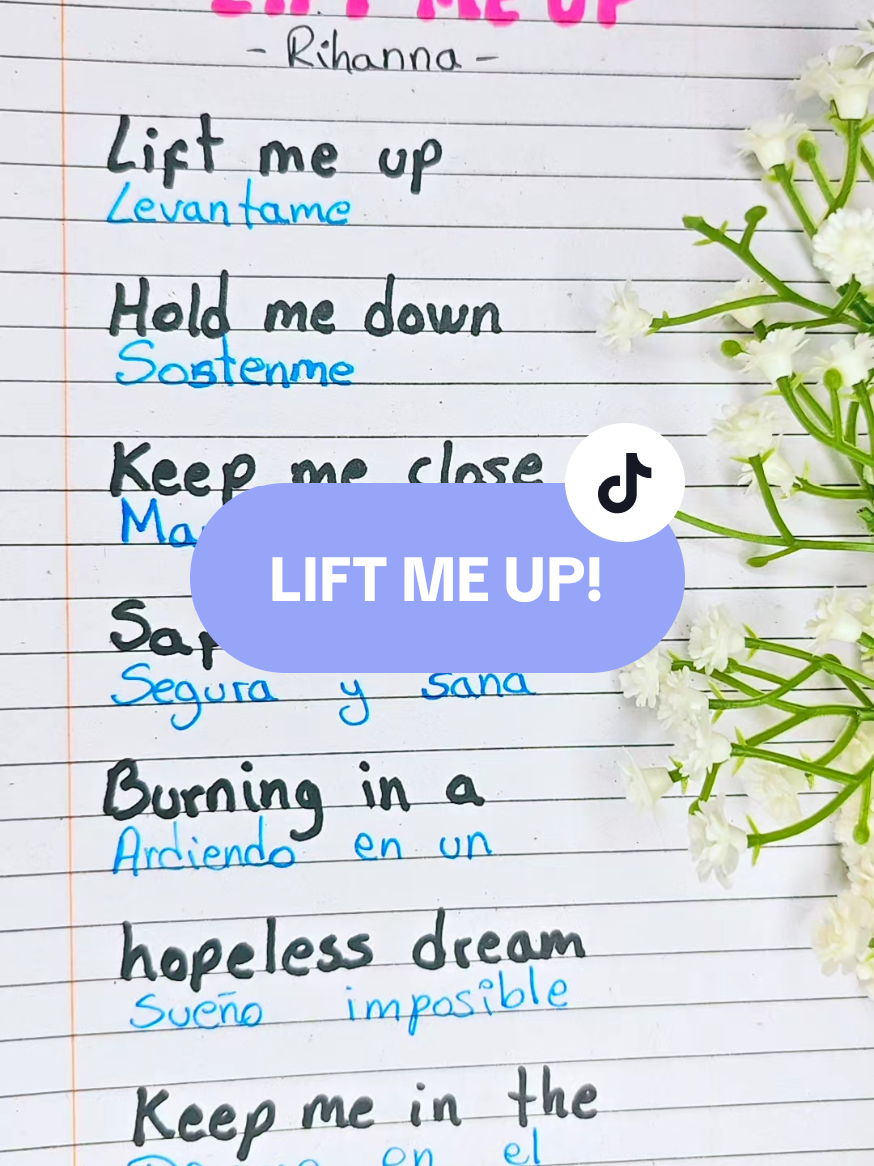 LIFT ME UP
- Rihanna -
Lift me up
Levantame
Hold me down
Sostenme
Keep me close
LIFT ME UP!
Segura y sana
Burning in a
Ardiendo en un
hopeless dream
Sueño imposible
Keep me in the
en el